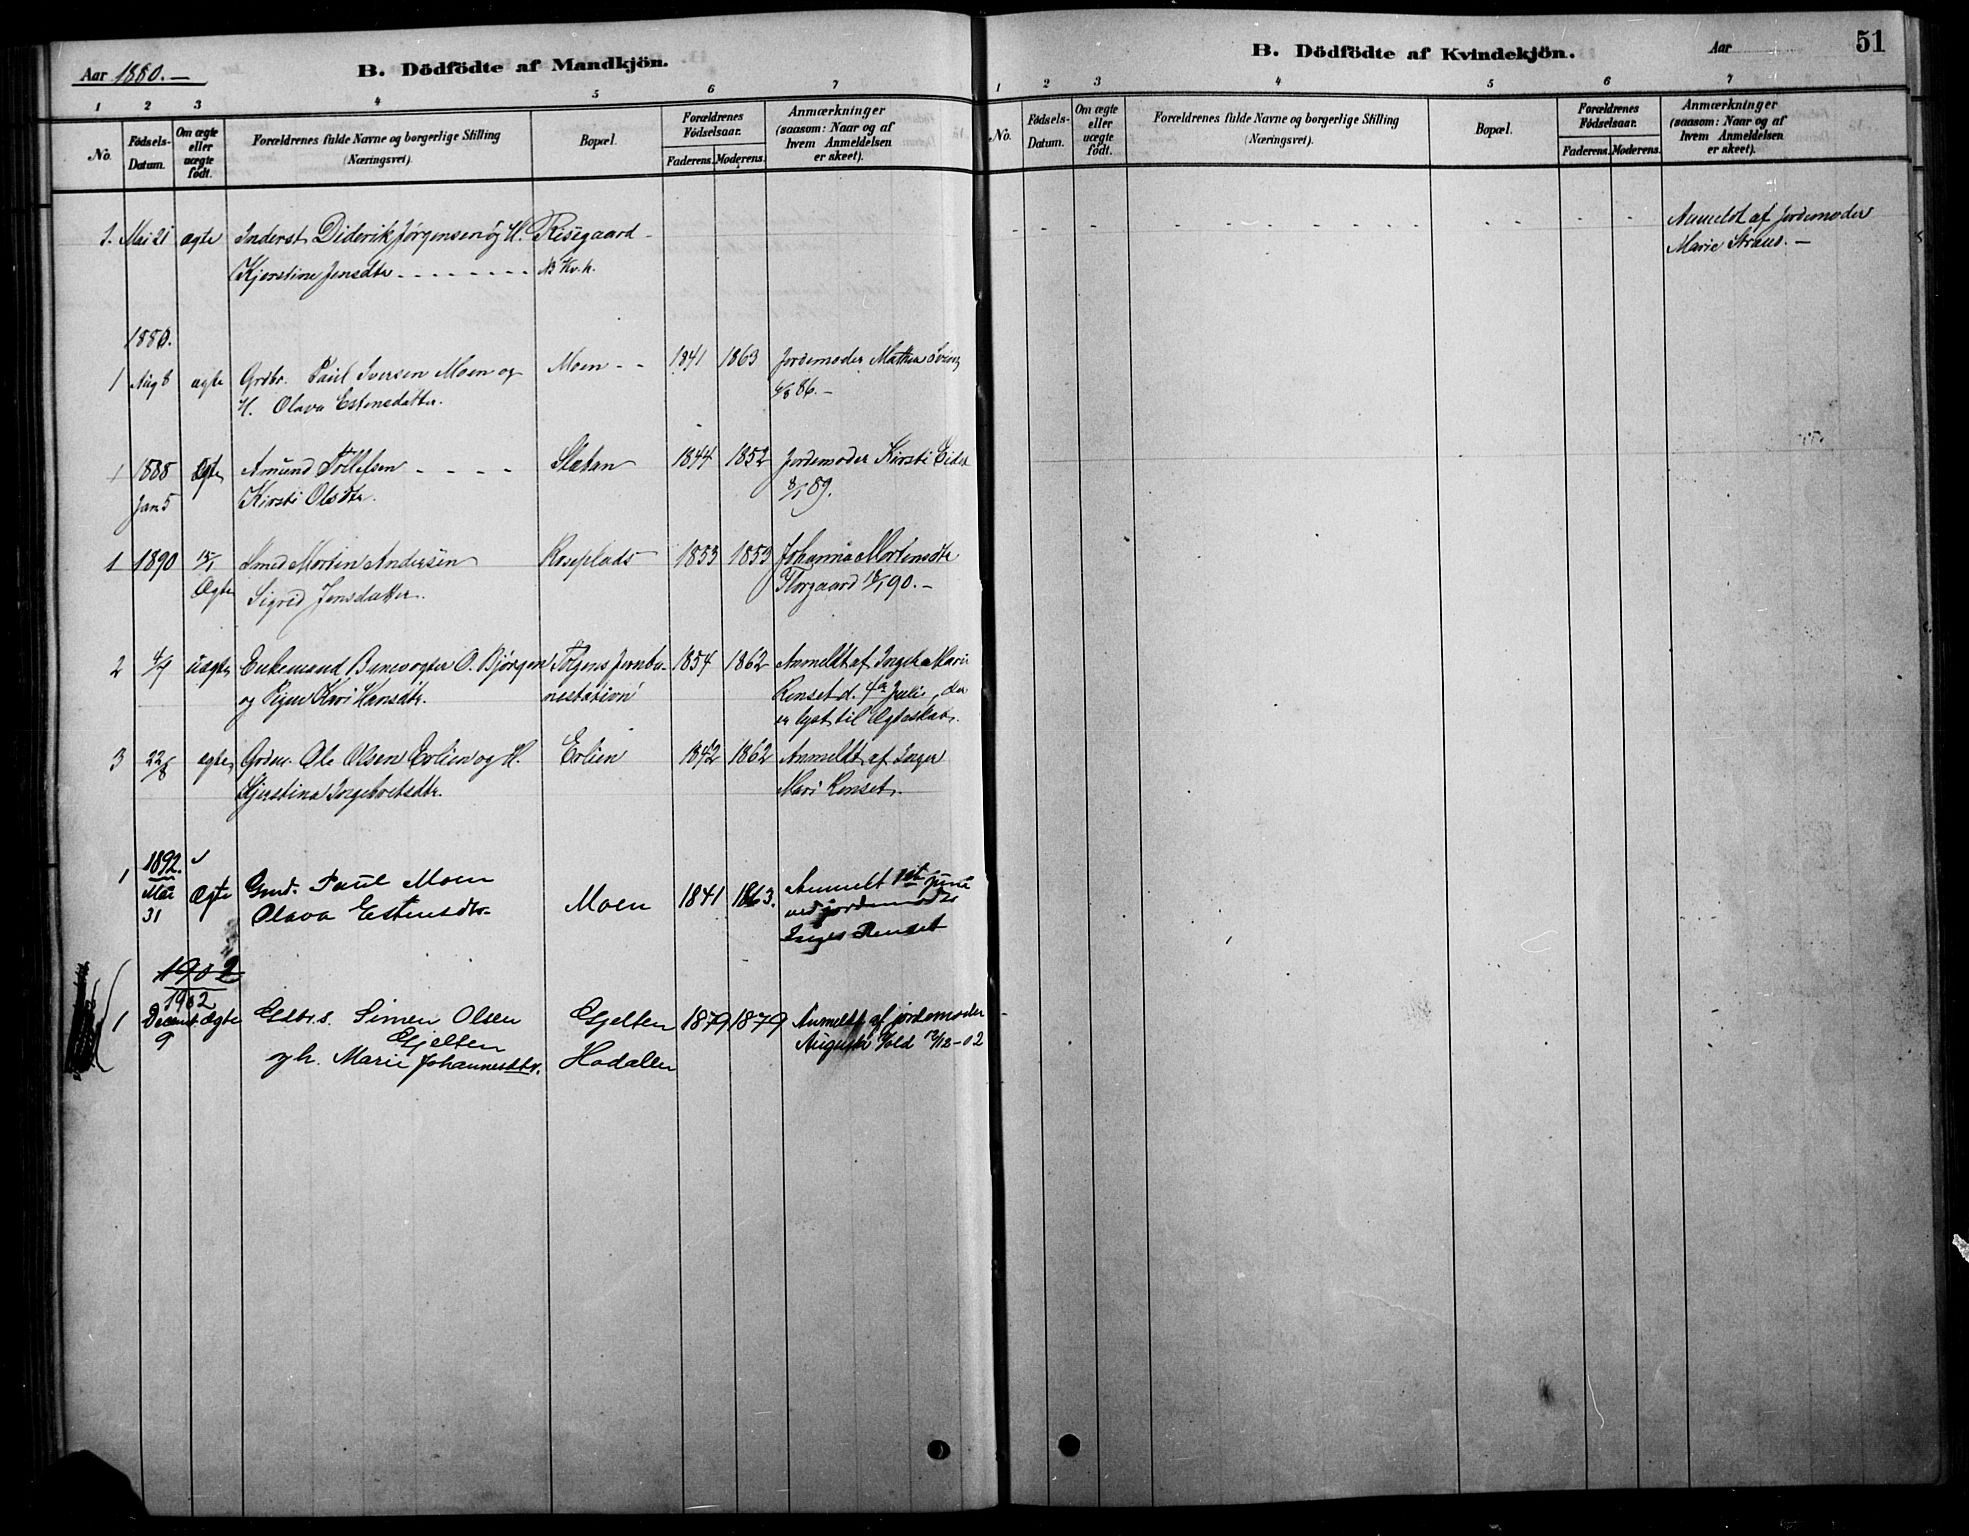 Aar 1880.—
B. Dödfödte af Mandkjön.
1 2 3 4 5 6 7
No. Födsels-Datum. Om ægte eller uægte födt. Forældrenes fulde Navne og borgerlige Stilling (Næringsvei). Bopæl. Forældrenes Födselsaar. Faderens. Moderens. Anmærkninger (saasom: Naar og af hvem Anmeldelsen er skeet).
1. Mai 21 ægte Inderst Diderik Jørgensen og H. Risegaard
Kjerstine Jensdtr
1886.
1 Aug 6 ægte Grdbr. Paul Iversen Moen og Moen 1841 1863 Jordemoder Mathea
H. Olava Estensdatter. 6/8 86.—
1 1888 Ægte Amund Tollefsen Sletan 1844 1852 Jordemoder Kirsti Eidet
Jan 5 Kirsti Olsdtr. 8/1 89.
1 1890 15/1 Smed Morten Andersen Roseplads 1853 1859 Johanna Mortensdtr
Ægte Sigrid Jensdatter. Florgaard 18/1 90.—
2 4/7 uægte Enkemand Banevogter O. Bjørgen Tolgens Jernba- 1854 1862 Anmeldt af Ingeb. Marie
og Pigen Kari Hansdtr. nestation Renset d. 4de Juli, der
er lyst til Ægteskab.
3 22/8 ægte Grdm. Ole Olsen Erlien og H. Erlien 1842 1862 Anmeldt af Inger
Kjerstina Ingebretsdtr. Mari Renset.
1892.
1 Mai Ægte Gmd. Paul Moen Moen 1841 1863. Anmelt 1st juni
31 Olava Estensdtr. ved jordemoder
Inger Renset
1902
1902
1 Decemb. Ægte Gdbrs. Simen Olsen Gjelten 1879 1879 Anmeldt af jordemoder
9 Gjelten Augusta Vold 12/12-02
og h. Marie Johannesdtr. Hodalen
B. Dödfödte af Kvindekjön.
Aar
51
1 2 3 4 5 6 7
No. Födsels-Datum. Om ægte eller uægte födt. Forældrenes fulde Navne og borgerlige Stilling (Næringsvei). Bopæl. Forældrenes Födselsaar. Faderens. Moderens. Anmærkninger (saasom: Naar og af hvem Anmeldelsen er skeet).
Anmeldt af Jordemoder
Marie Straus.—